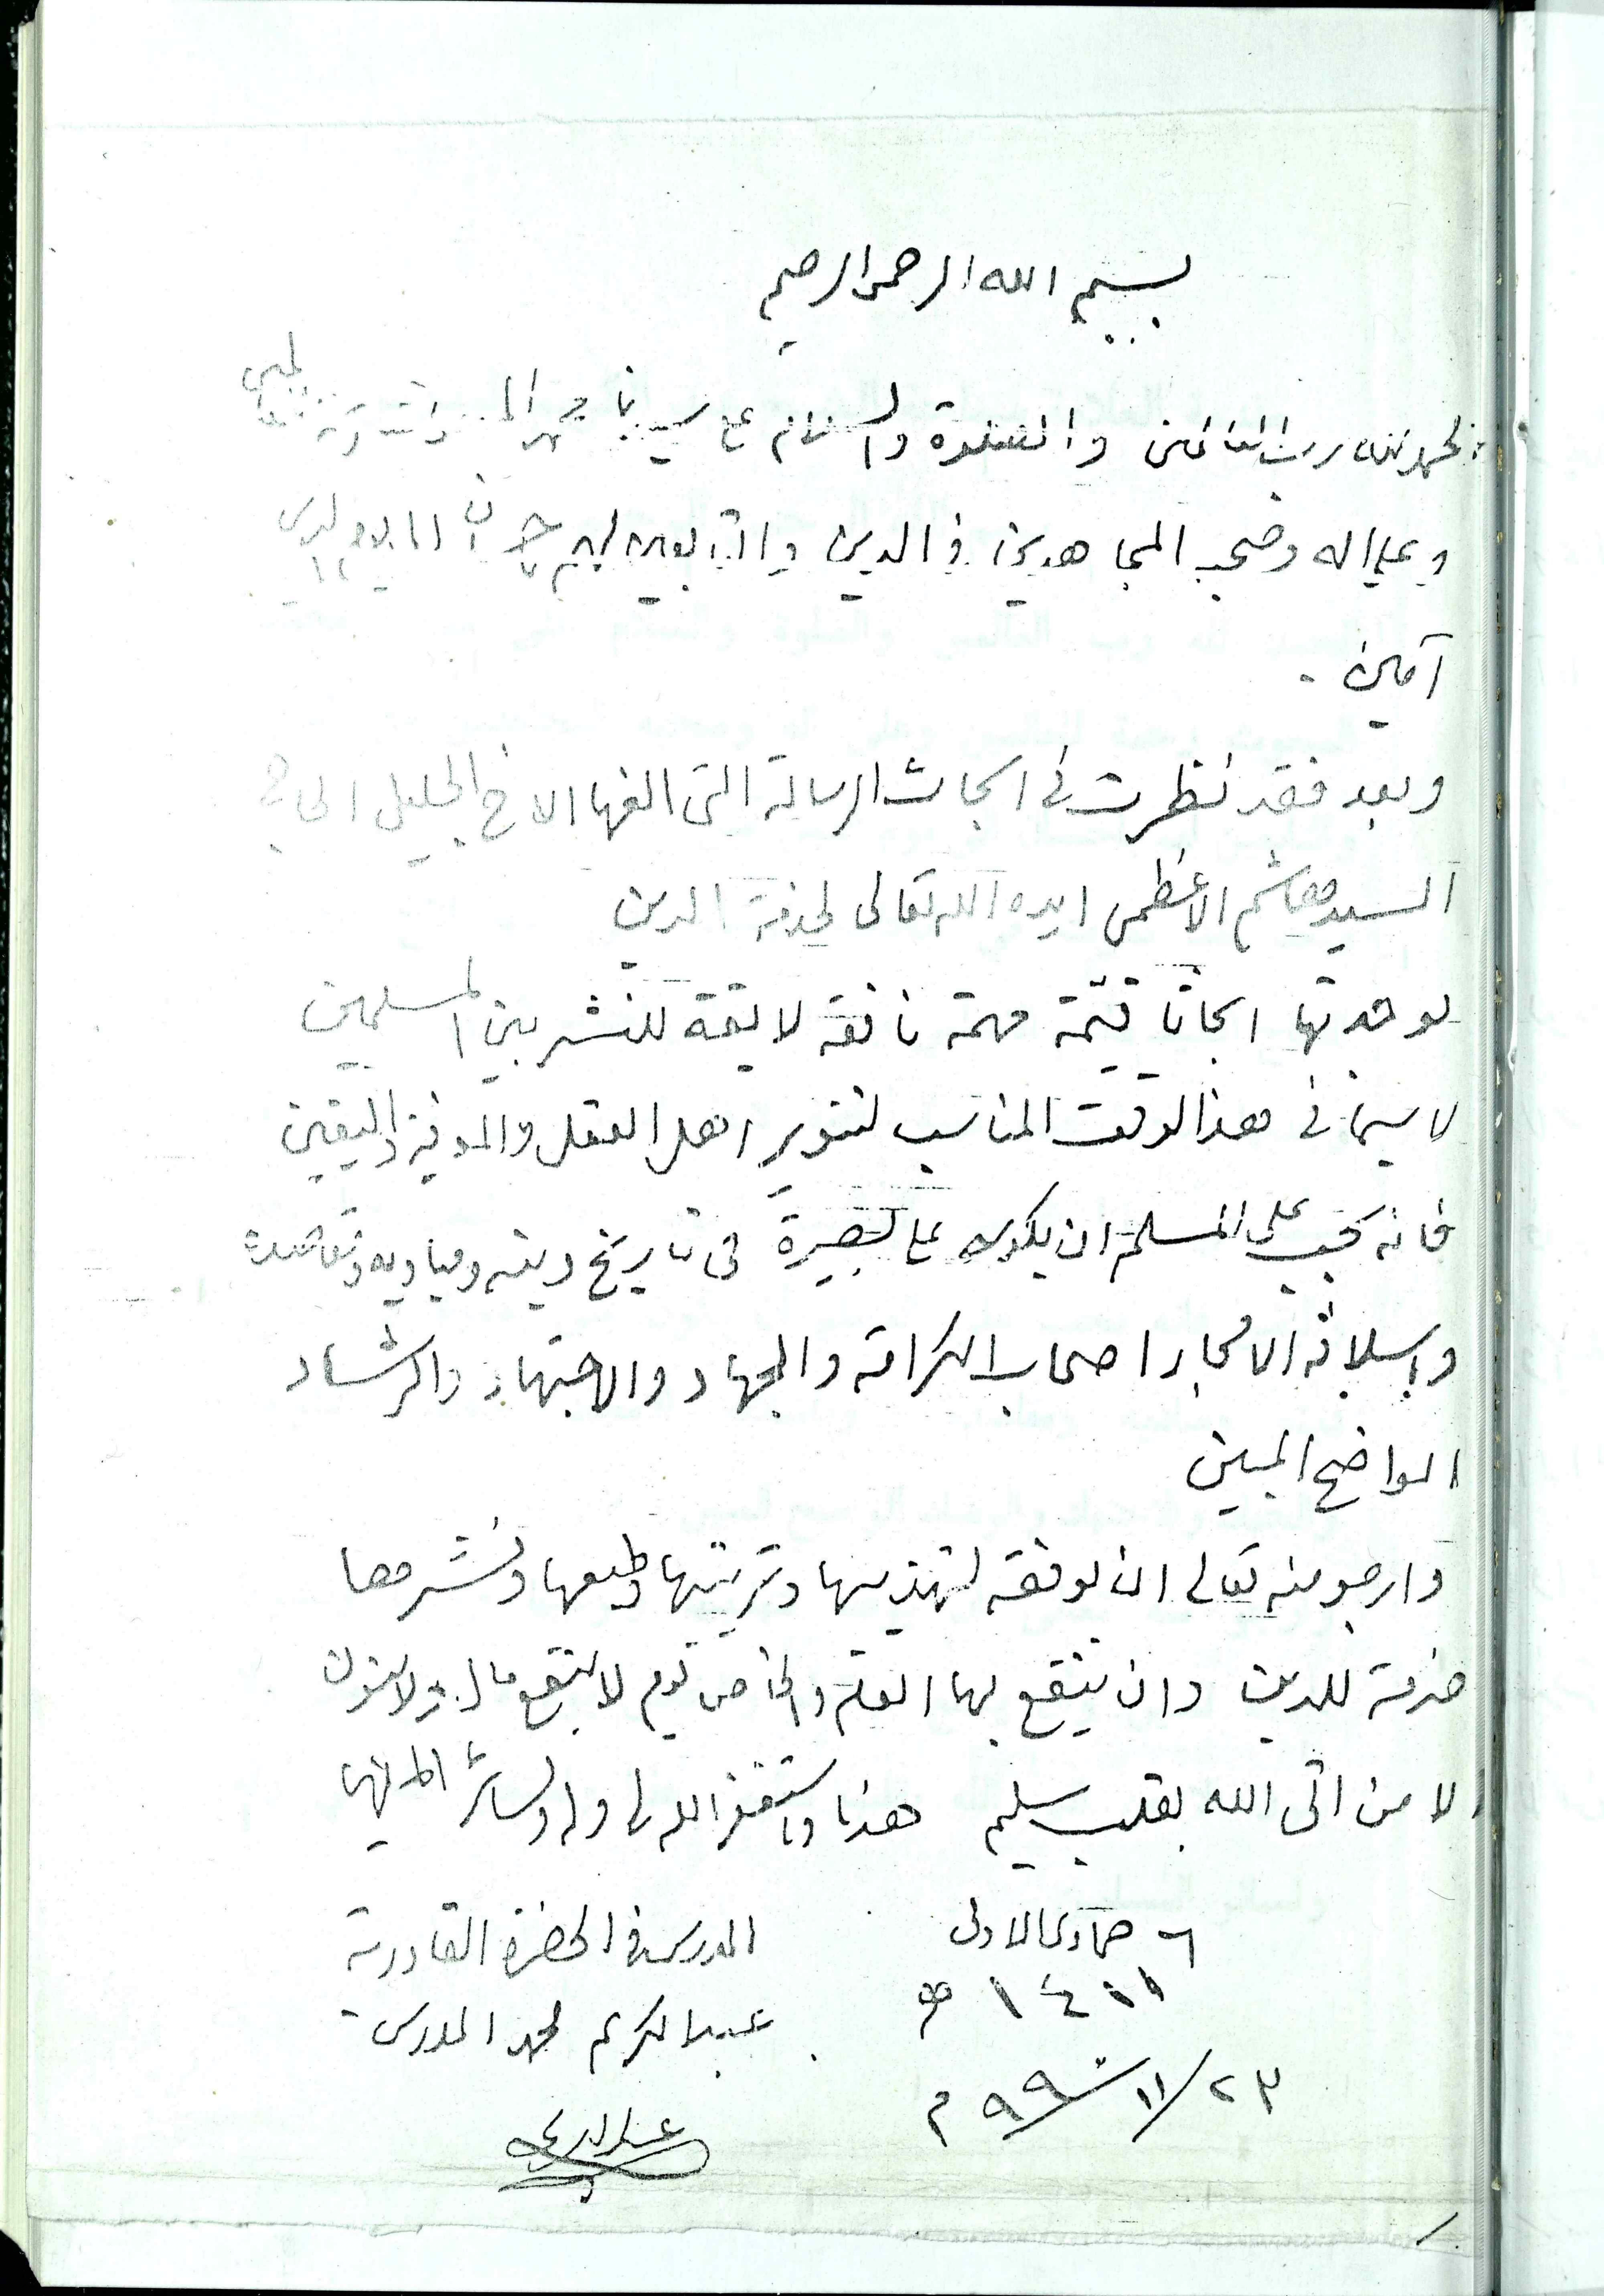 بسم الله الرحمن الرحيم
الحمد لله رب العالمين والصلوة والسلام على سيدنا محمد
وعلى اله وصحبه المجاهدين في الدين والتابعين لهم
آمين .
وبعد فقد نظرت في ابحاث الرسالة التي الفها الاخ الجليل الحاج
السيد هاشم الاعظمى ايده الله تعالى لخدمة الدين
فوجدتها ابحاثا قيّمة مهمة نافعة لايقة للنشر بين المسلمين
لا سيما في هذا الوقت المناسب لتنوير اهل العقل والمعرفة واليقين
فانه يجب على المسلم ان يكون على بصيرة في تاريخ دينه ومباديه وقاعدة
واسلافه الامجاد اصحاب الكرامة والجهاد والاجتهاد والرشاد
الواضح المبين
وارجو منه تعالى ان يوفقه لتهذيبها وترتيبها وطبعها ونشرها
خدمة للدين وان ينتفع بها العام والخاص يوم لا ينفع مال ولا بنون
الا من اتى الله بقلب سليم هذا واستغفر الله لي وله ولسائر
المدرس في الحضرة القادرية
عبد الكريم محمد المدرس
٦ جمادى الاولى
١٤١١ هـ
٢٣/١١/٩٩٠ م
عبد الكريم